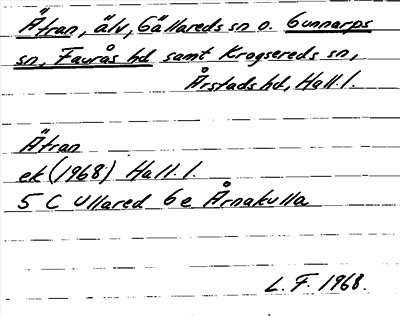 Ätran, älv, Gällareds sn o. Gunnarps
sn, Faurås hd samt Krogsereds sn,
Årstads hd, Hall. l.
Ätran
ek (1968) Hall. l.
5 C Ullared 6 e Årnakulla
L. F. 1968.